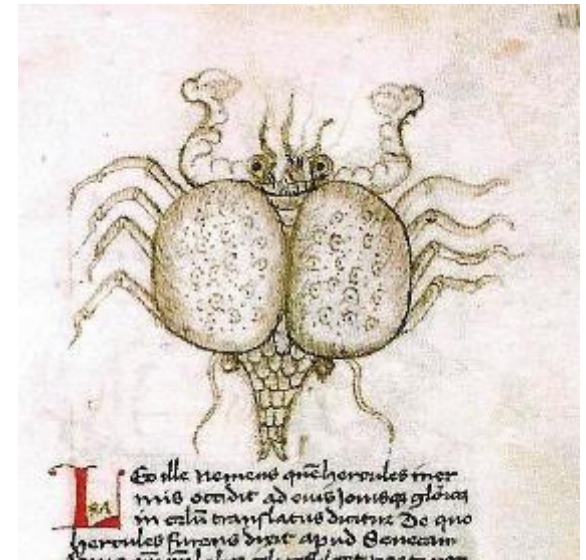 LEo ille nemeus quē hercules iner
mis occidit ad eius Jouisqȝ gloriā
in celū translatus dicitur De quo
hercules furens dixit apud Senecam